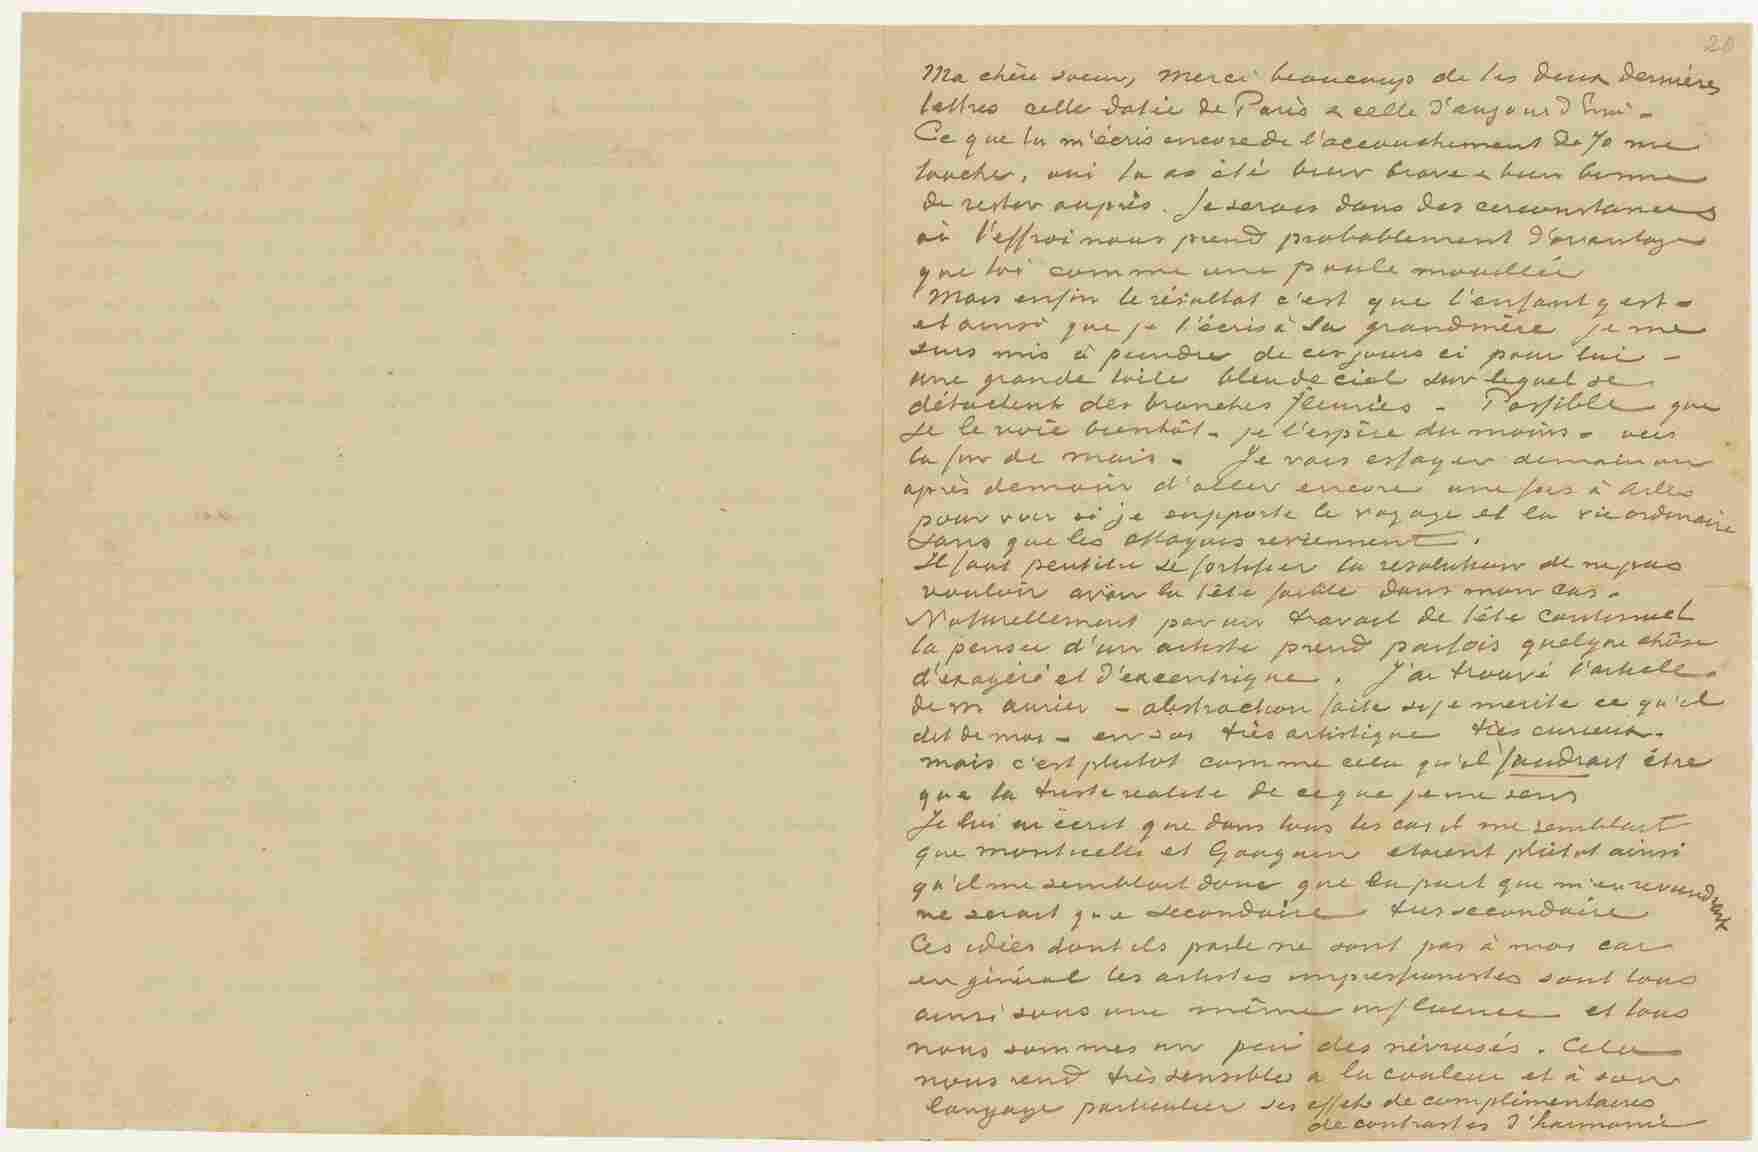 20
Ma chère soeur, merci beaucoup de tes deux dernières
lettres celle datée de Paris & celle d'aujourd'hui –
Ce que tu m'écris encore de l'accouchement de Jo me
touche, oui tu as été bien brave & bien bonne
de rester auprès. Je serais dans des circonstances
où l'effroi nous prend probablement d'avantage
que toi comme une poule mouillée
Mais enfin le résultat c'est que l'enfant y est –
et ainsi que je l'écris à sa grandmère je me
suis mis à peindre de ces jours ci pour lui –
une grande toile bleu de ciel sur lequel se
détachent des branches fleuries – Possible que
je le voie bientôt – je l'espère du moins – vers
la fin de mars – Je vais essayer demain ou
après demain d'aller encore une fois à Arles
pour voir si je supporte le voyage et la vie ordinaire
sans que les attaques reviennent.
Il faut peutêtre se fortifier la resolution de ne pas
vouloir avoir la tête faible dans mon cas.
Naturellement par un travail de tête continuel
la pensée d'un artiste prend parfois quelque chôse
d'exagéré et d'excentrique. J'ai trouvé l'article
de M Aurier – abstraction faite si je merite ce qu'il
dit de moi – en soi très artistique très curieux.
mais c'est plutot comme cela qu'il faudrait être
que la triste realite de ce que je me sens
Je lui ai écrit que dans tous les cas il me semblait
que Monticelli et Gauguin etaient plutot ainsi
qu'il me semblait donc que la part que m'en reviendrait
ne serait que secondaire très secondaire
Ces idées dont ils parle ne sont pas à moi car
en général les artistes impressionistes sont tous
ainsi sous une même influence et tous
nous sommes un peu des névrosés. Cela
nous rend très sensibles a la couleur et à son
langage particulier ses effets de complémentaires
de contrastes d'harmonie